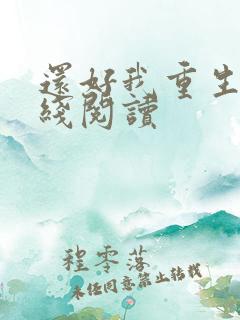 還好我重生
綫閱讀
程零落
未任同意禁止轉載